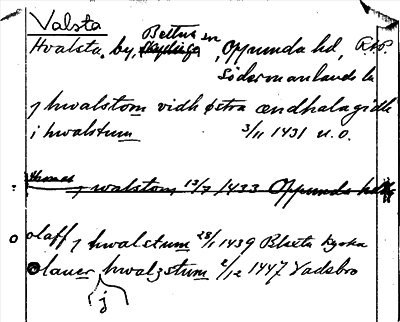 Valsta
Hvalsta, by, Bettna sn, Oppunda hd, RAP.
Södermanlands l.
j hwalstom vidh østra ændhalagidh
i hwalstum 3/11 1431 u.o.
thomas j walstom 13/7 1433 Oppunda
olaff j hwalstum 28/1 1439 kyrka
olauer hwalzstum 2/12 1447 Vadsbro
j